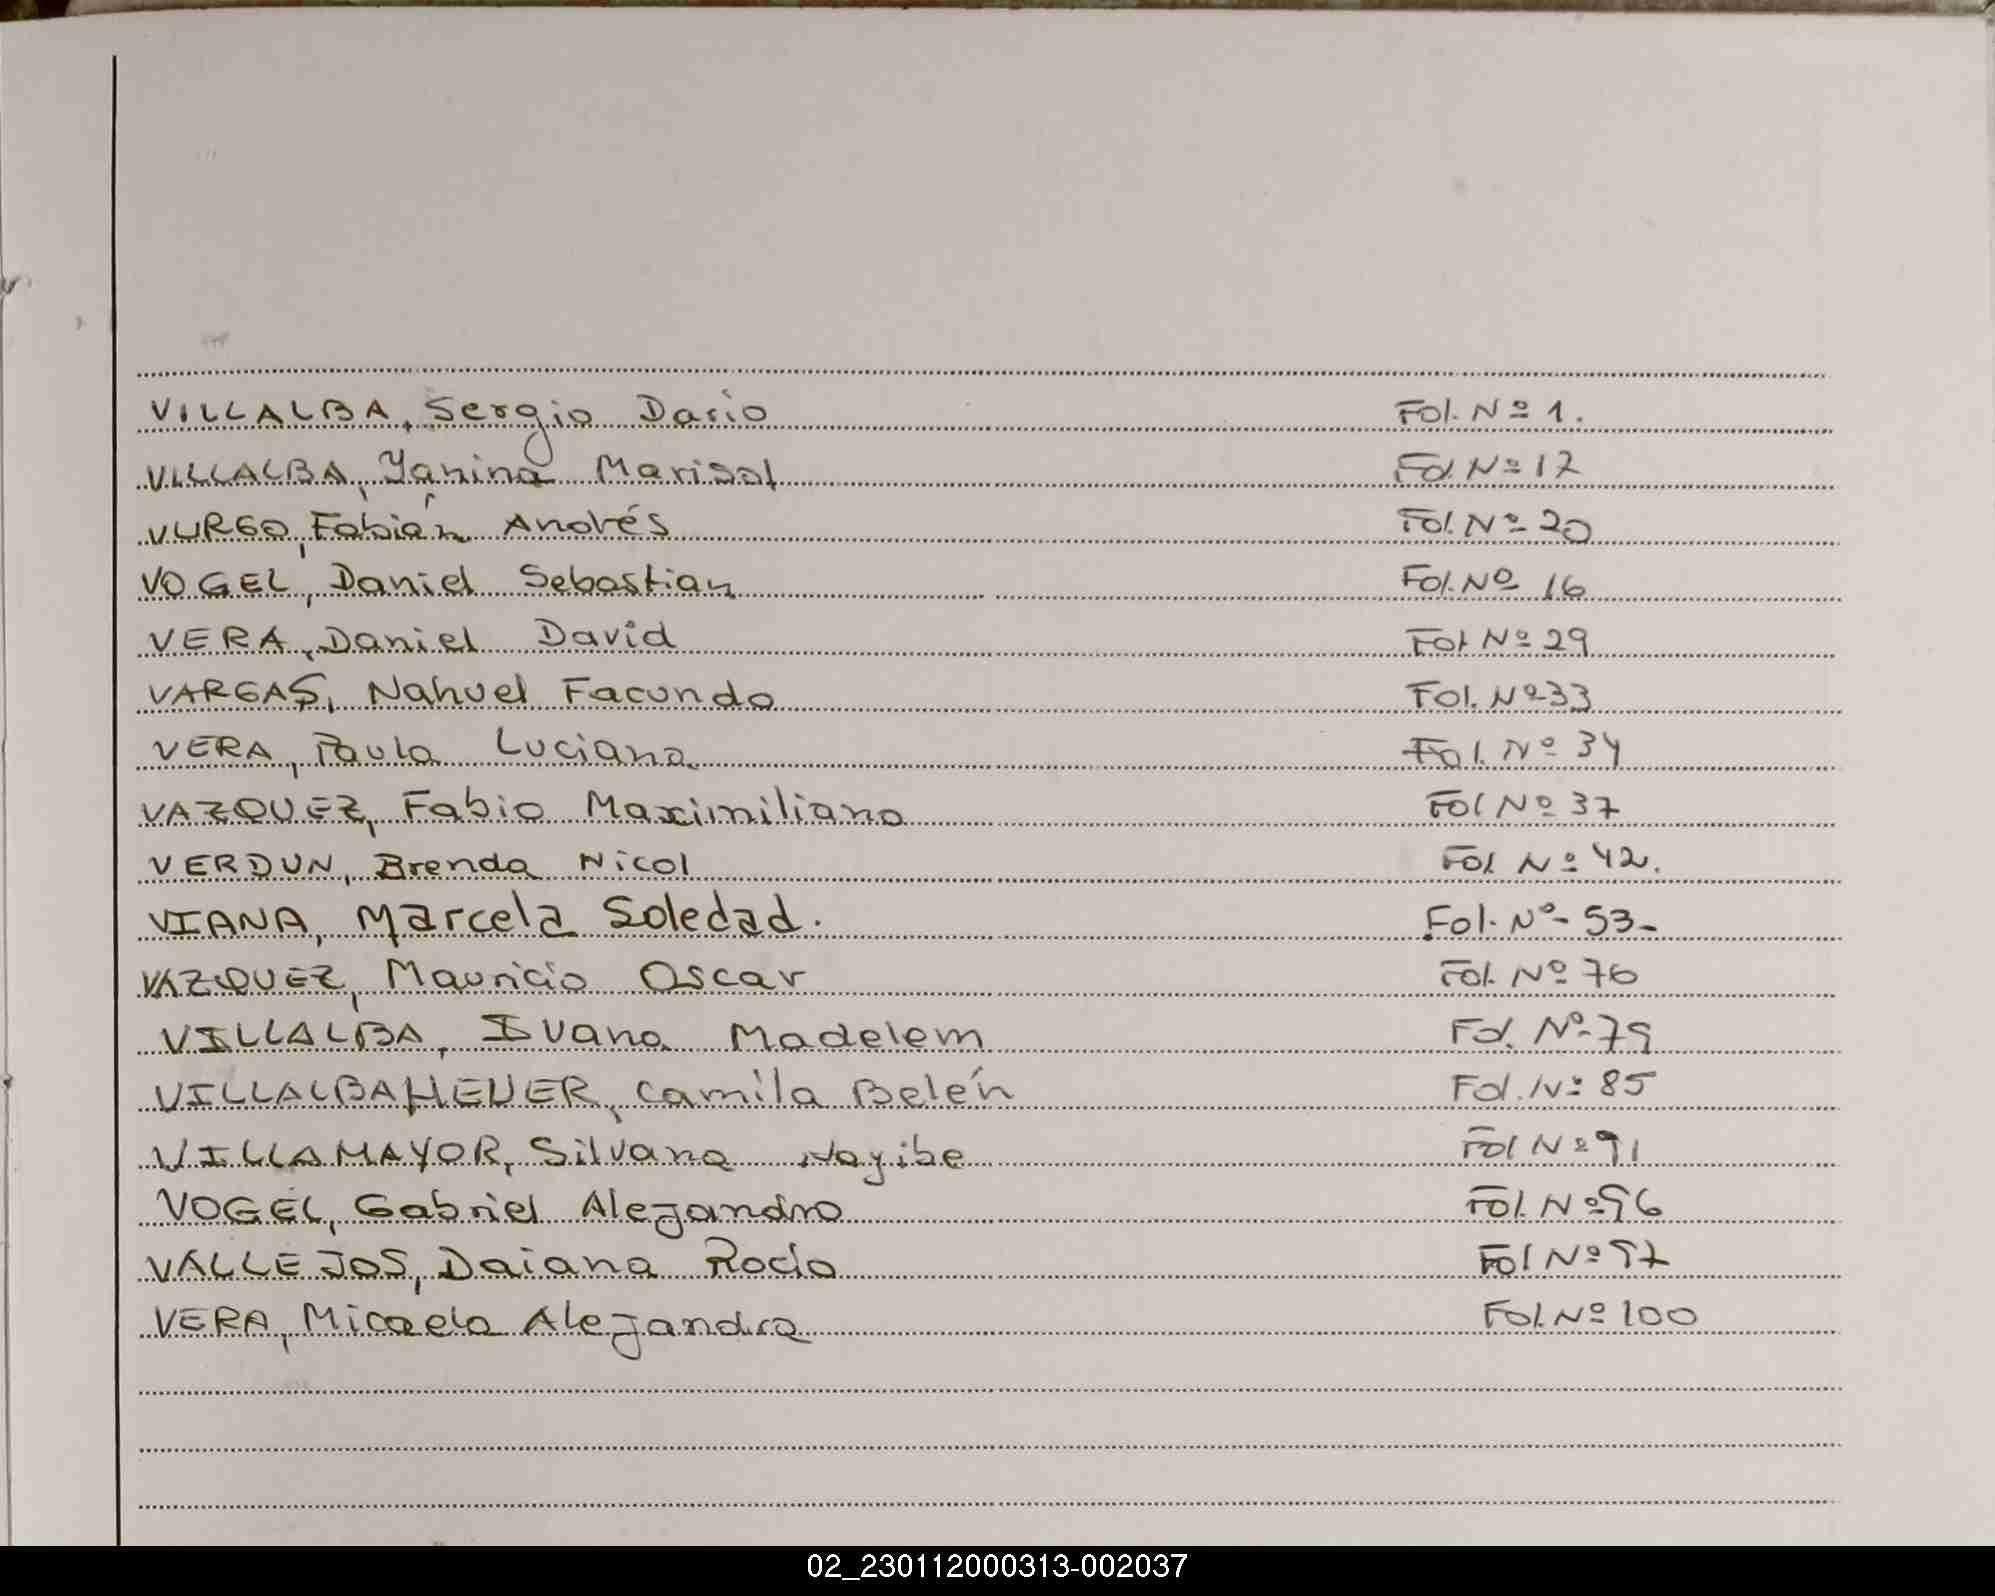 VILLALBA, Sergio Dario Fol. Nº 1.
VILLALBA, Yanina Marisol Fol Nº 17
VURGO, Fabián Andrés Fol. Nº 20
VOGEL, Daniel Sebastian Fol. Nº 16
VERA, Daniel David Fol Nº 29
VARGAS, Nahuel Facundo Fol. Nº 33
VERA, Paula Luciana Fol. Nº 34
VAZQUEZ, Fabio Maximiliano Fol Nº 37
VERDUN, Brenda Nicol Fol Nº 42.
VIANA, Marcela Soledad. Fol. Nº 53-
VAZQUEZ, Mauricio Oscar Fol. Nº 76
VILLALBA, Ivana Madelem Fol. Nº 79
VILLALBAHEUER, Camila Belén Fol. Nº 85
VILLAMAYOR, Silvana Nayibe Fol Nº 91
VOGEL, Gabriel Alejandro Fol. Nº 96
VALLEJOS, Daiana Rocio Fol Nº 97
VERA, Micaela Alejandra Fol. Nº 100
02_230112000313-002037